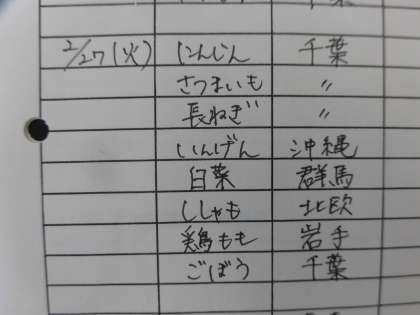 2/27(火) にんじん 千葉
さつまいも 〃
長ねぎ 〃
いんげん 沖縄
白菜 群馬
ししゃも 北欧
鶏もも 岩手
ごぼう 千葉